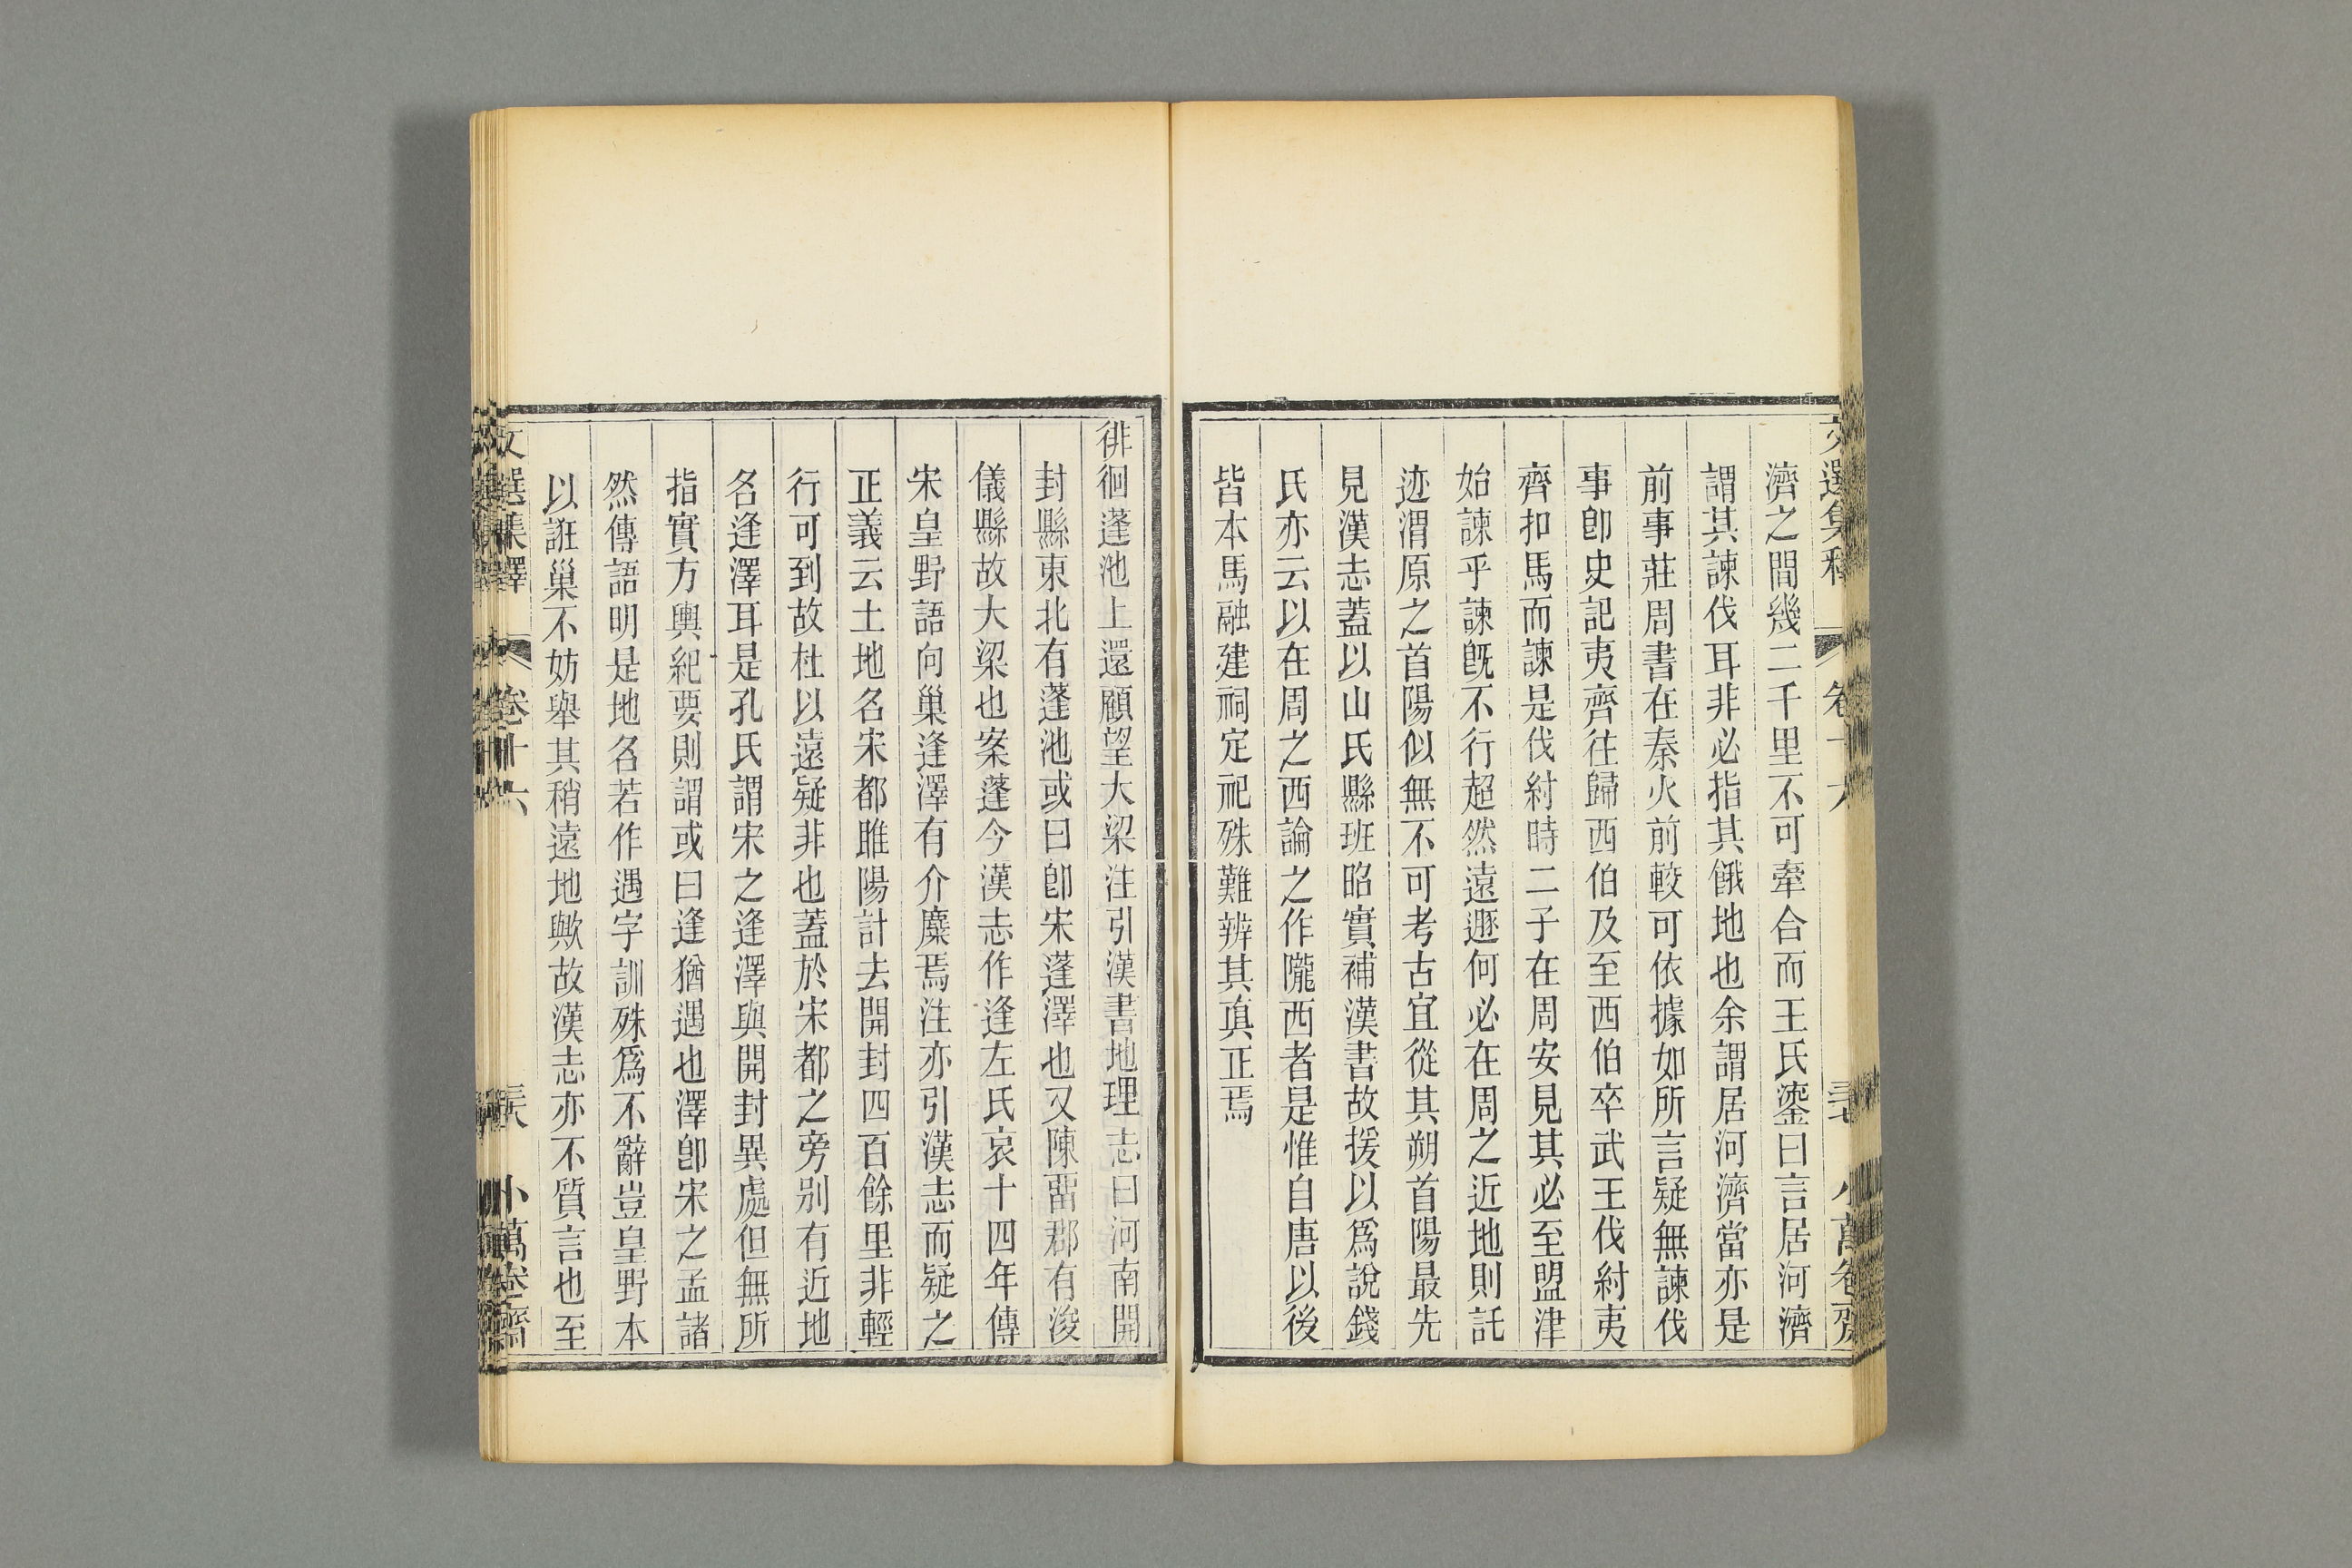 文選集釋 卷十六 三七 小萬卷齋
濟之間幾二千里不可牽合而王氏鎏曰言居河濟
謂其諫伐耳非必指其餓地也余謂居河濟當亦是
前事莊周書在秦火前較可依據如所言疑無諫伐
事卽史記夷齊往歸西伯及至西伯卒武王伐紂夷
齊扣馬而諫是伐紂時二子在周安見其必至盟津
始諫乎諫旣不行超然遠遯何必在周之近地則託
迹渭原之首陽似無不可考古宜從其朔首陽最先
見漢志蓋以山氏縣班昭實補漢書故援以爲說錢
氏亦云以在周之西論之作隴西者是惟自唐以後
皆本馬融建祠定祀殊難辨其眞正焉
徘徊蓬池上還顧望大梁注引漢書地理志曰河南開
封縣東北有蓬池或曰卽宋蓬澤也又陳畱郡有浚
儀縣故大梁也案蓬今漢志作逢左氏哀十四年傳
宋皇野語向巢逢澤有介麋焉注亦引漢志而疑之
正義云土地名宋都睢陽計去開封四百餘里非輕
行可到故杜以遠疑非也蓋於宋都之旁別有近地
名逢澤耳是孔氏謂宋之逢澤與開封異處但無所
指實方輿紀要則謂或曰逢猶遇也澤卽宋之孟諸
然傳語明是地名若作遇字訓殊爲不辭豈皇野本
以誑巢不妨舉其稍遠地歟故漢志亦不質言也至
文選集釋 卷十六 三六 小萬卷齋